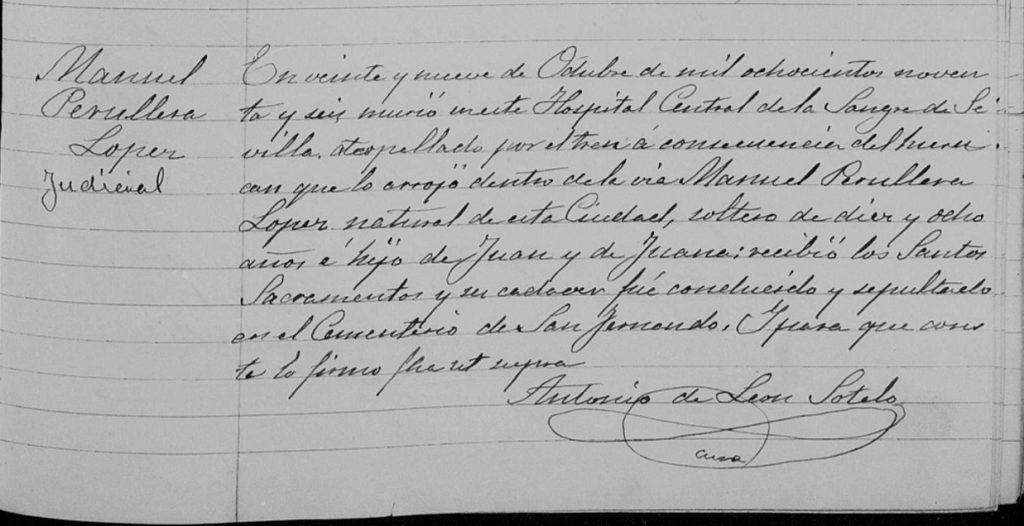 Manuel
Perullera
Loper
Judicial
En veinte y nueve de Octubre de mil ochocientos noven
ta y seis murió en este Hospital Central de la Sangre de Se
villa, atropellado por el tren á consecuencia del hura
can que lo arrojó dentro de la via Manuel Perullera
Loper natural de esta Ciudad, soltero de dier y ocho
años é hijo de Juan y de Juana; recibió los Santos
Sacramentos y su cadaver fué conducido y sepultado
en el Cementerio de San Fernando. Y para que cons
te lo firmo fha ut supra
Antonio de Leon Sotelo
cura